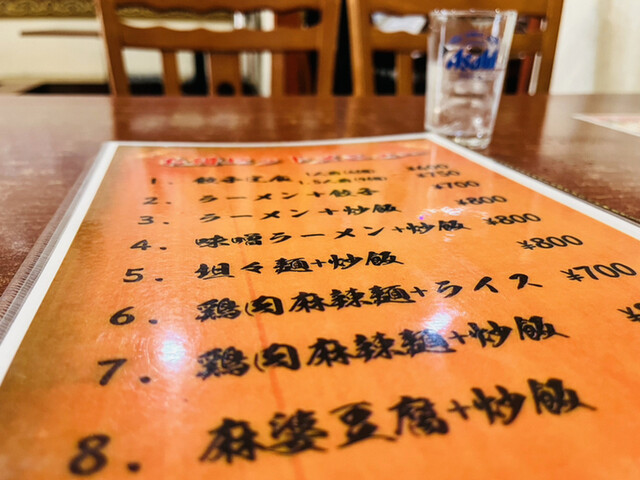 Asahi
1. 餃子定食
¥750
2. ラーメン+餃子 ¥700
3. ラーメン+炒飯 ¥800
4. 味噌ラーメン+炒飯 ¥800
5. 坦々麺+炒飯 ¥800
6. 鶏肉麻辣麺+ライス ¥700
7. 鶏肉麻辣麺+炒飯
8. 麻婆豆腐+炒飯